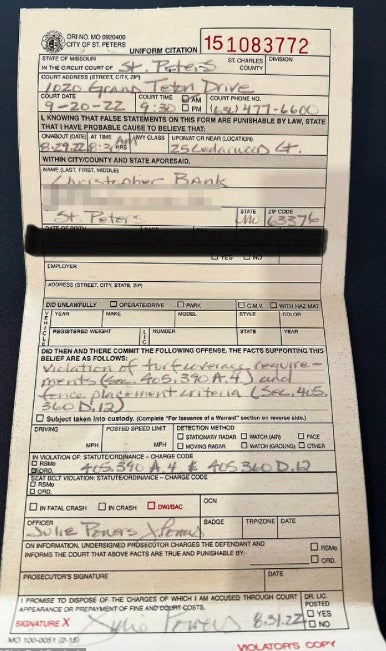 ORI NO. MO 0920400
CITY OF ST. PETERS
UNIFORM CITATION
151083772
STATE OF MISSOURI
IN THE CIRCUIT COURT OF St. Peters
ST. CHARLES COUNTY
DIVISION
COURT ADDRESS (STREET, CITY, ZIP)
1020 Grand Teton Drive
COURT DATE COURT TIME AM PM COURT PHONE NO.
9-20-22 9:30 477-6600
I, KNOWING THAT FALSE STATEMENTS ON THIS FORM ARE PUNISHABLE BY LAW, STATE
THAT I HAVE PROBABLE CAUSE TO BELIEVE THAT:
ON/ABOUT (DATE) AT (TIME) HWY CLASS UPON/AT OR NEAR (LOCATION)
8.29.22 AM HRS 25 Cedarwood Ct.
WITHIN CITY/COUNTY AND STATE AFORESAID,
NAME (LAST, FIRST, MIDDLE)
Christopher Bank
STATE ZIP CODE
St. Peters Mo 63376
YES NO
EMPLOYER
ADDRESS (STREET, CITY, STATE, ZIP)
DID UNLAWFULLY OPERATE/DRIVE PARK C.M.V. WITH HAZ MAT
VEHICLE
YEAR MAKE MODEL STYLE COLOR
REGISTERED WEIGHT LIC NUMBER STATE YEAR
DID THEN AND THERE COMMIT THE FOLLOWING OFFENSE. THE FACTS SUPPORTING THIS
BELIEF ARE AS FOLLOWS:
Violation of turf coverage require-
ments (Sec. 405.390 A.4.) and
fence placement criteria (Sec. 405.
360 D.12)
Subject taken into custody. (Complete "For Issuance of a Warrant" section on reverse side.)
DRIVING POSTED SPEED LIMIT DETECTION METHOD
MPH MPH
STATIONARY RADAR WATCH (AIR) PACE
MOVING RADAR WATCH (GROUND) OTHER
IN VIOLATION OF: STATUTE/ORDINANCE – CHARGE CODE
RSMo
ORD. 405.390 A.4 & 405.360 D.12
SEAT BELT VIOLATION: STATUTE/ORDINANCE – CHARGE CODE
RSMo
ORD.
IN FATAL CRASH IN CRASH DWI/BAC OCN
OFFICER BADGE TRP/ZONE DATE
Julie Powers
ON INFORMATION, UNDERSIGNED PROSECUTOR CHARGES THE DEFENDANT AND
INFORMS THE COURT THAT ABOVE FACTS ARE TRUE AND PUNISHABLE BY:
RSMo
ORD.
PROSECUTOR'S SIGNATURE DATE
I PROMISE TO DISPOSE OF THE CHARGES OF WHICH I AM ACCUSED THROUGH COURT
APPEARANCE OR PREPAYMENT OF FINE AND COURT COSTS.
DR. LIC. POSTED
YES
NO
SIGNATURE X Julie Powers 8.31.22
MO 100-0051 (2-15)
VIOLATOR'S COPY